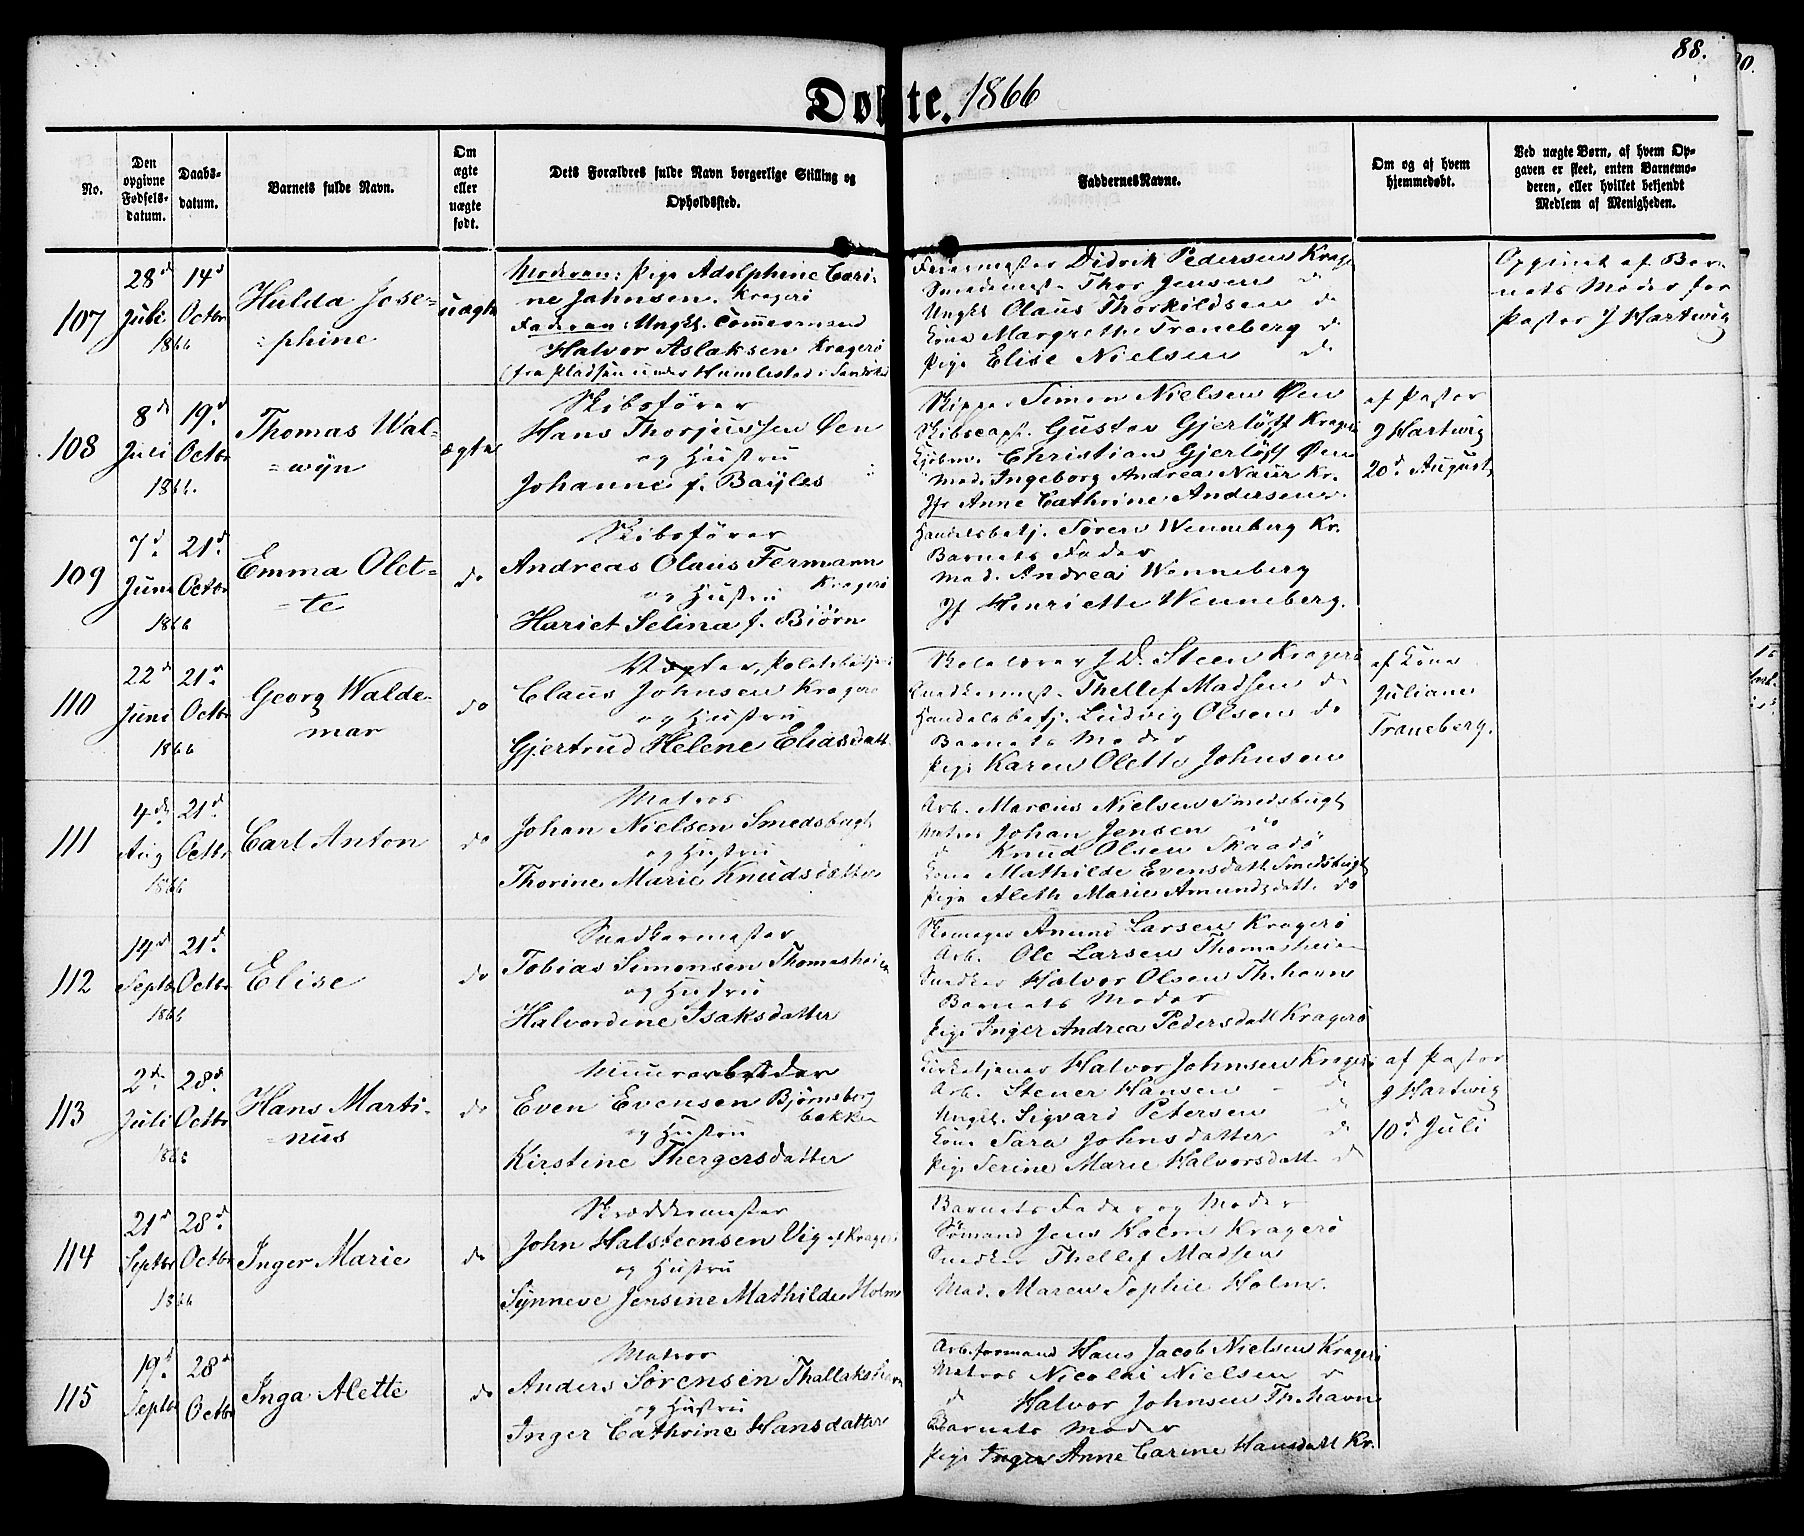 88.
Døbte. 1866
No.
Den opgivne Fødselsdatum.
Daabsdatum.
Barnets fulde Navn.
Om ægte eller uægte født.
Dets Forældres fulde Navn borgerlige Stilling og Opholdssted.
Faddernes Navne.
Om og af hvem hjemmedøbt.
Ved uægte Børn, af hvem Opgaven er skeet, enten Barnemoderen, eller hvilket bekjendt Medlem af Menigheden.
107
28d Juli 1866
14d Octbr
Hulda Josephine
uægte
Moderen: Pige Adolphine Carine Johnsen. Kragerö
Faderen: Ungk. Tømmermand
Halvor Aslaksen Kragerö
(fra Pladsen under Humlestad i
Feiermester Didrik Pedersen Krag
Smedmest. Thor Jensen do
Ungk Olaus Thorkildsen do
Kone Margrethe Traneberg do
Pige Elise Nielsen do
Opgivet af Barnets Moder for
Pastor J Hartwig
108
8de Juli 1866.
19d Octbr
Thomas Walwÿn
ægte
Skibsfører
Hans Thorjussen Øen
og Hustru
Johanne f. Bayles
Skipper Simon Nielsen Øen
Skibscapt. Gustav Gjerløff Krager
Kjøbm. Christian Gjerløff Øen
Mad. Ingeborg Andrea Naur Kr.
Jfr Anne Cathrine Andersen.
af Pastor
J Hartwig
20d August
109
7d. Juni 1866
21d. Octbr
Emma Olette
do
Skibsfører
Andreas Olaus Fermann
og Hustru Kragerö
Hariet Selina f. Biørn
Handelsbetj. Søren Wenneberg Kr.
Barnets Fader
Mad. Andrea Wenneberg
Jf Henriette Wenneberg.
110
22d Juni 1866
21d. Octbr
Georg Waldemar
do
Vægter, Politibetjen
Claus Johnsen Kragerö
og Hustru
Gjertrud Helene Eliasdatt.
Skolelærer J D. Steen Kragerö
Snedkermest. Thellef Madsen do
Handelsbetj. Ludvig Olsen do
Barnets Moder
Pige Karen Olette Johnsen
af Kone
Juliane
Traneberg.
111
4de Aug 1866
21d. Octbr
Carl Anton
do
Matros
Johan Nielsen Smedsbugt
og Hustru
Thorine Marie Knudsdatter
Arb. Marcus Nielsen Smedsbugt
Matros Johan Jensen do
d Knud Olsen Skaadö
Kone Mathilde Evensdatt Smedsbugt
Pige Aleth Marie Amundsdatt. do
112
14d Septbr 1866
21d. Octbr
Elise
do
Snedkermester
Tobias Simonsen Thomesheien
og Hustru
Halvordine Isaksdatter
Skomager Anund Larsen Kragerö
Arb. Ole Larsen Thomesheien
Snedker Halvor Olsen Th.havn
Barnets Moder
Pige Inger Andrea Pedersdatt Kragerö
113
2d. Juli 1866
28d. Octbr
Hans Martinus
do
Muurarbeider
Even Evensen Bjørnsbergbakken
og Hustru
Kirstine Thergersdatter
Kirketjener Halvor Johnsen Krager
Arb. Stener Hansen do
Ungk. Sigvard Petersen do
Kone Sara Johnsdatter do
Pige Serine Marie Halvorsdatt. do
af Pastor
J Hartwig
10d Juli
114
21d Septbr 1866
28d. Octbr
Inger Marie
do
Skræddermester
John Halsteensen Vig af Krager
og Hustru
Synneve Jensine Mathilde Holm
Barnets Fader og Moder
Sømand Jens Holm Kragerö
Snedker Thellef Madsen
Mad. Maren Sophie Holm.
115
19d. Septbr
28d Octbr
Inga Alette
do
Matros
Anders Sørensen Thallakshavn
og Hustru
Inger Cathrine Hansdatter
Arb.formand Hans Jacob Nielsen Kragerö
Matros Nicolai Nielsen d
d Halvor Johnsen Th.havn
Barnets Moder
Pige Inger Anne Carine Hansdatt Kr.